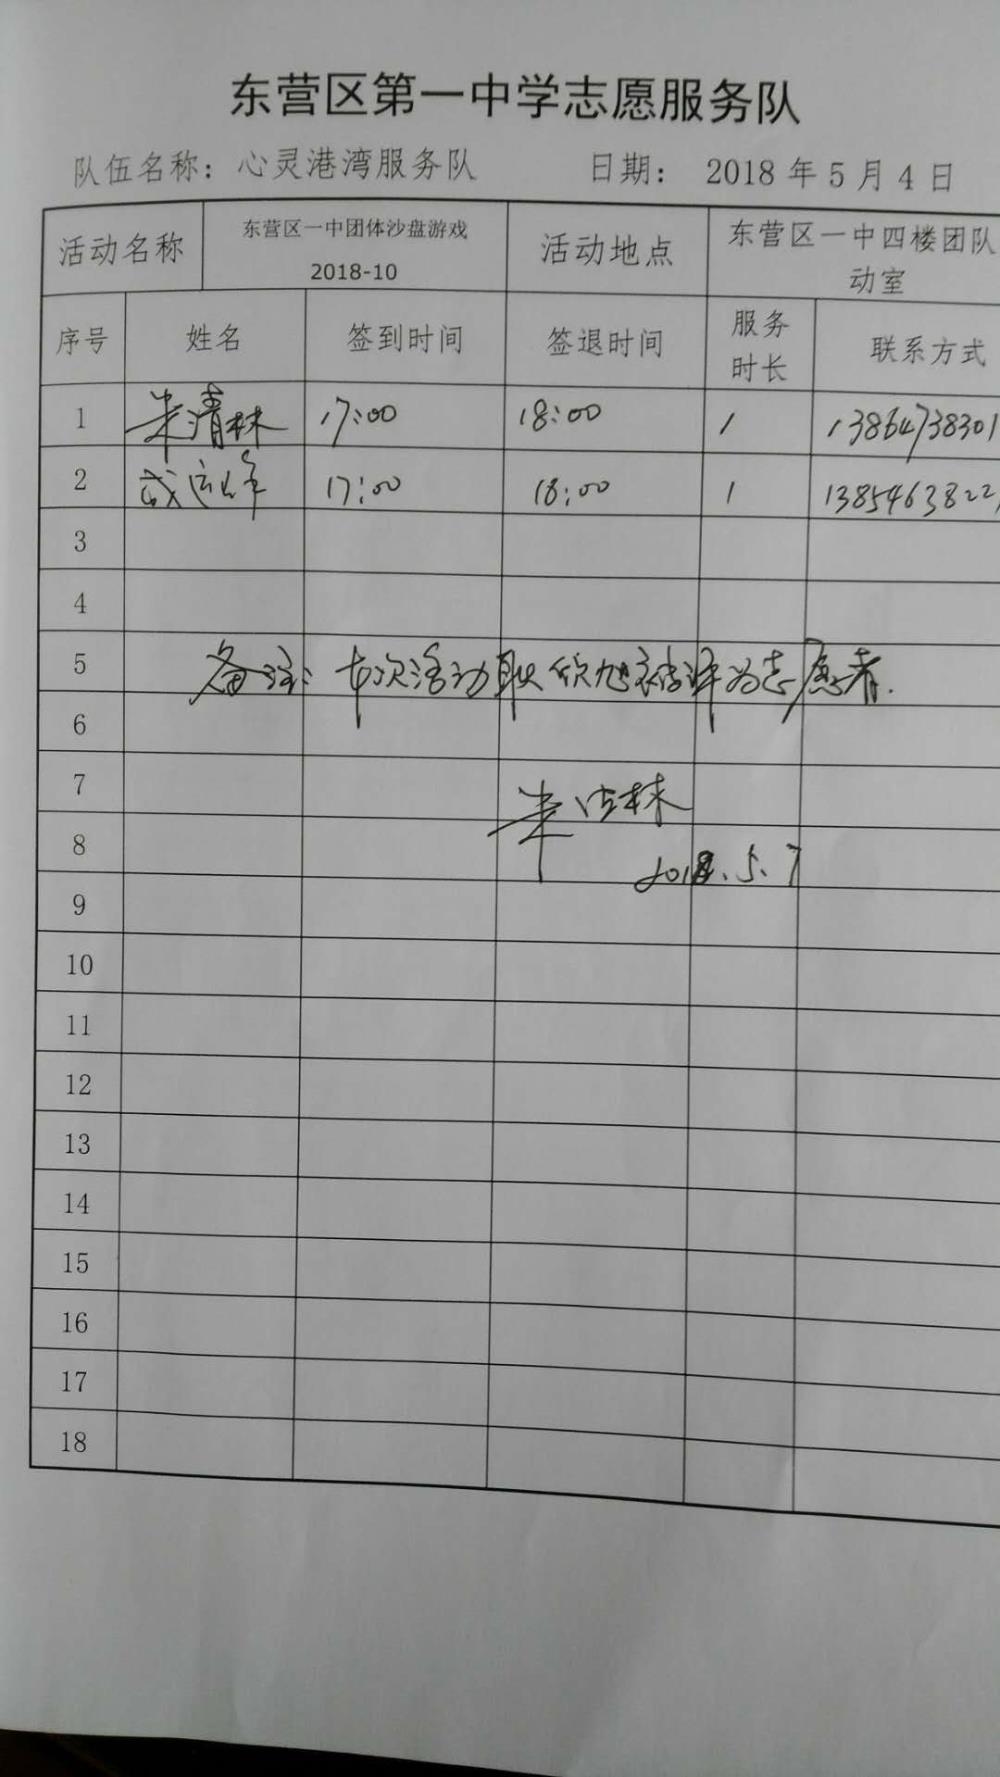 东营区第一中学志愿服务队
队伍名称：心灵港湾服务队 日期： 2018 年 5 月 4 日
活动名称 东营区一中团体沙盘游戏 2018-10 活动地点 东营区一中四楼团队 动室
序号 姓名 签到时间 签退时间 服务时长 联系方式
1 朱清林 17:00 18:00 1 13864738301
2 17:00 18:00 1 1385463822
3
4
5 备注：本次活动 被评为志愿者.
6
7 朱清林
8 2018.5.7
9
10
11
12
13
14
15
16
17
18